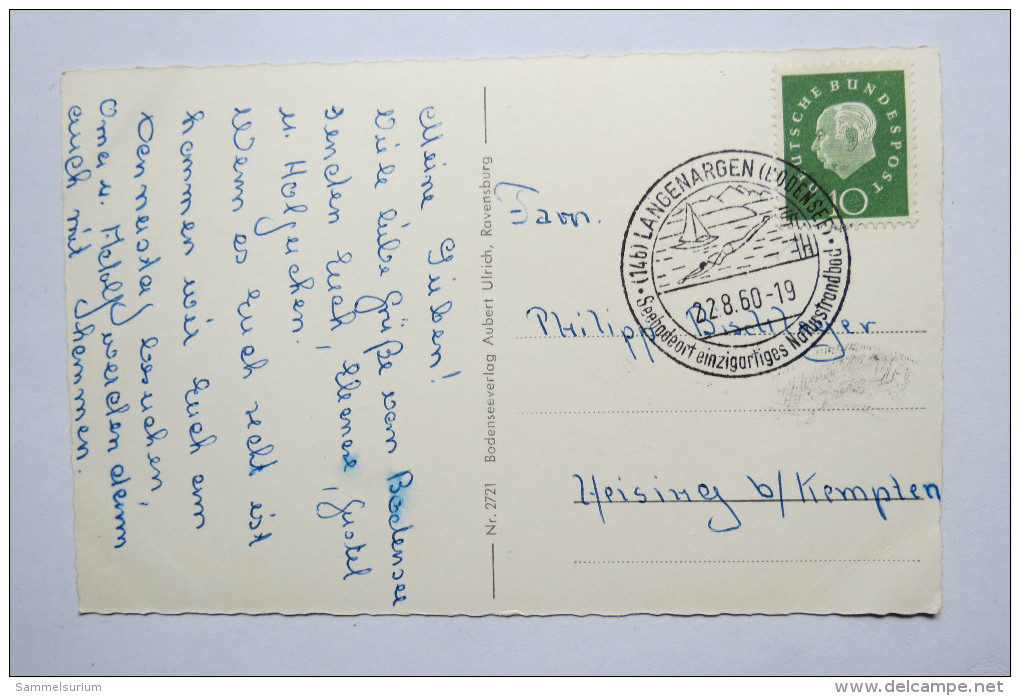 Meine Lieben!
Viele liebe Grüße vom Bodensee
senden Euch, Elenore, Gustel
u. Holgerchen.
Wenn es Euch recht ist
kommen wir Euch am
Donnerstag besuchen,
Oma u. Adolf werden dann
auch mit kommen.
Nr. 2721 Bodenseeverlag Aubert Ulrich, Ravensburg
DEUTSCHE BUNDESPOST
10
(14b) LANGENARGEN (BODENSEE)
22.8.60-19
Seebadeort einzigartiges Naturstrandbad
Fam.
Philipp
Heising b/Kempten
Sammelsurium
www.delcampe.net